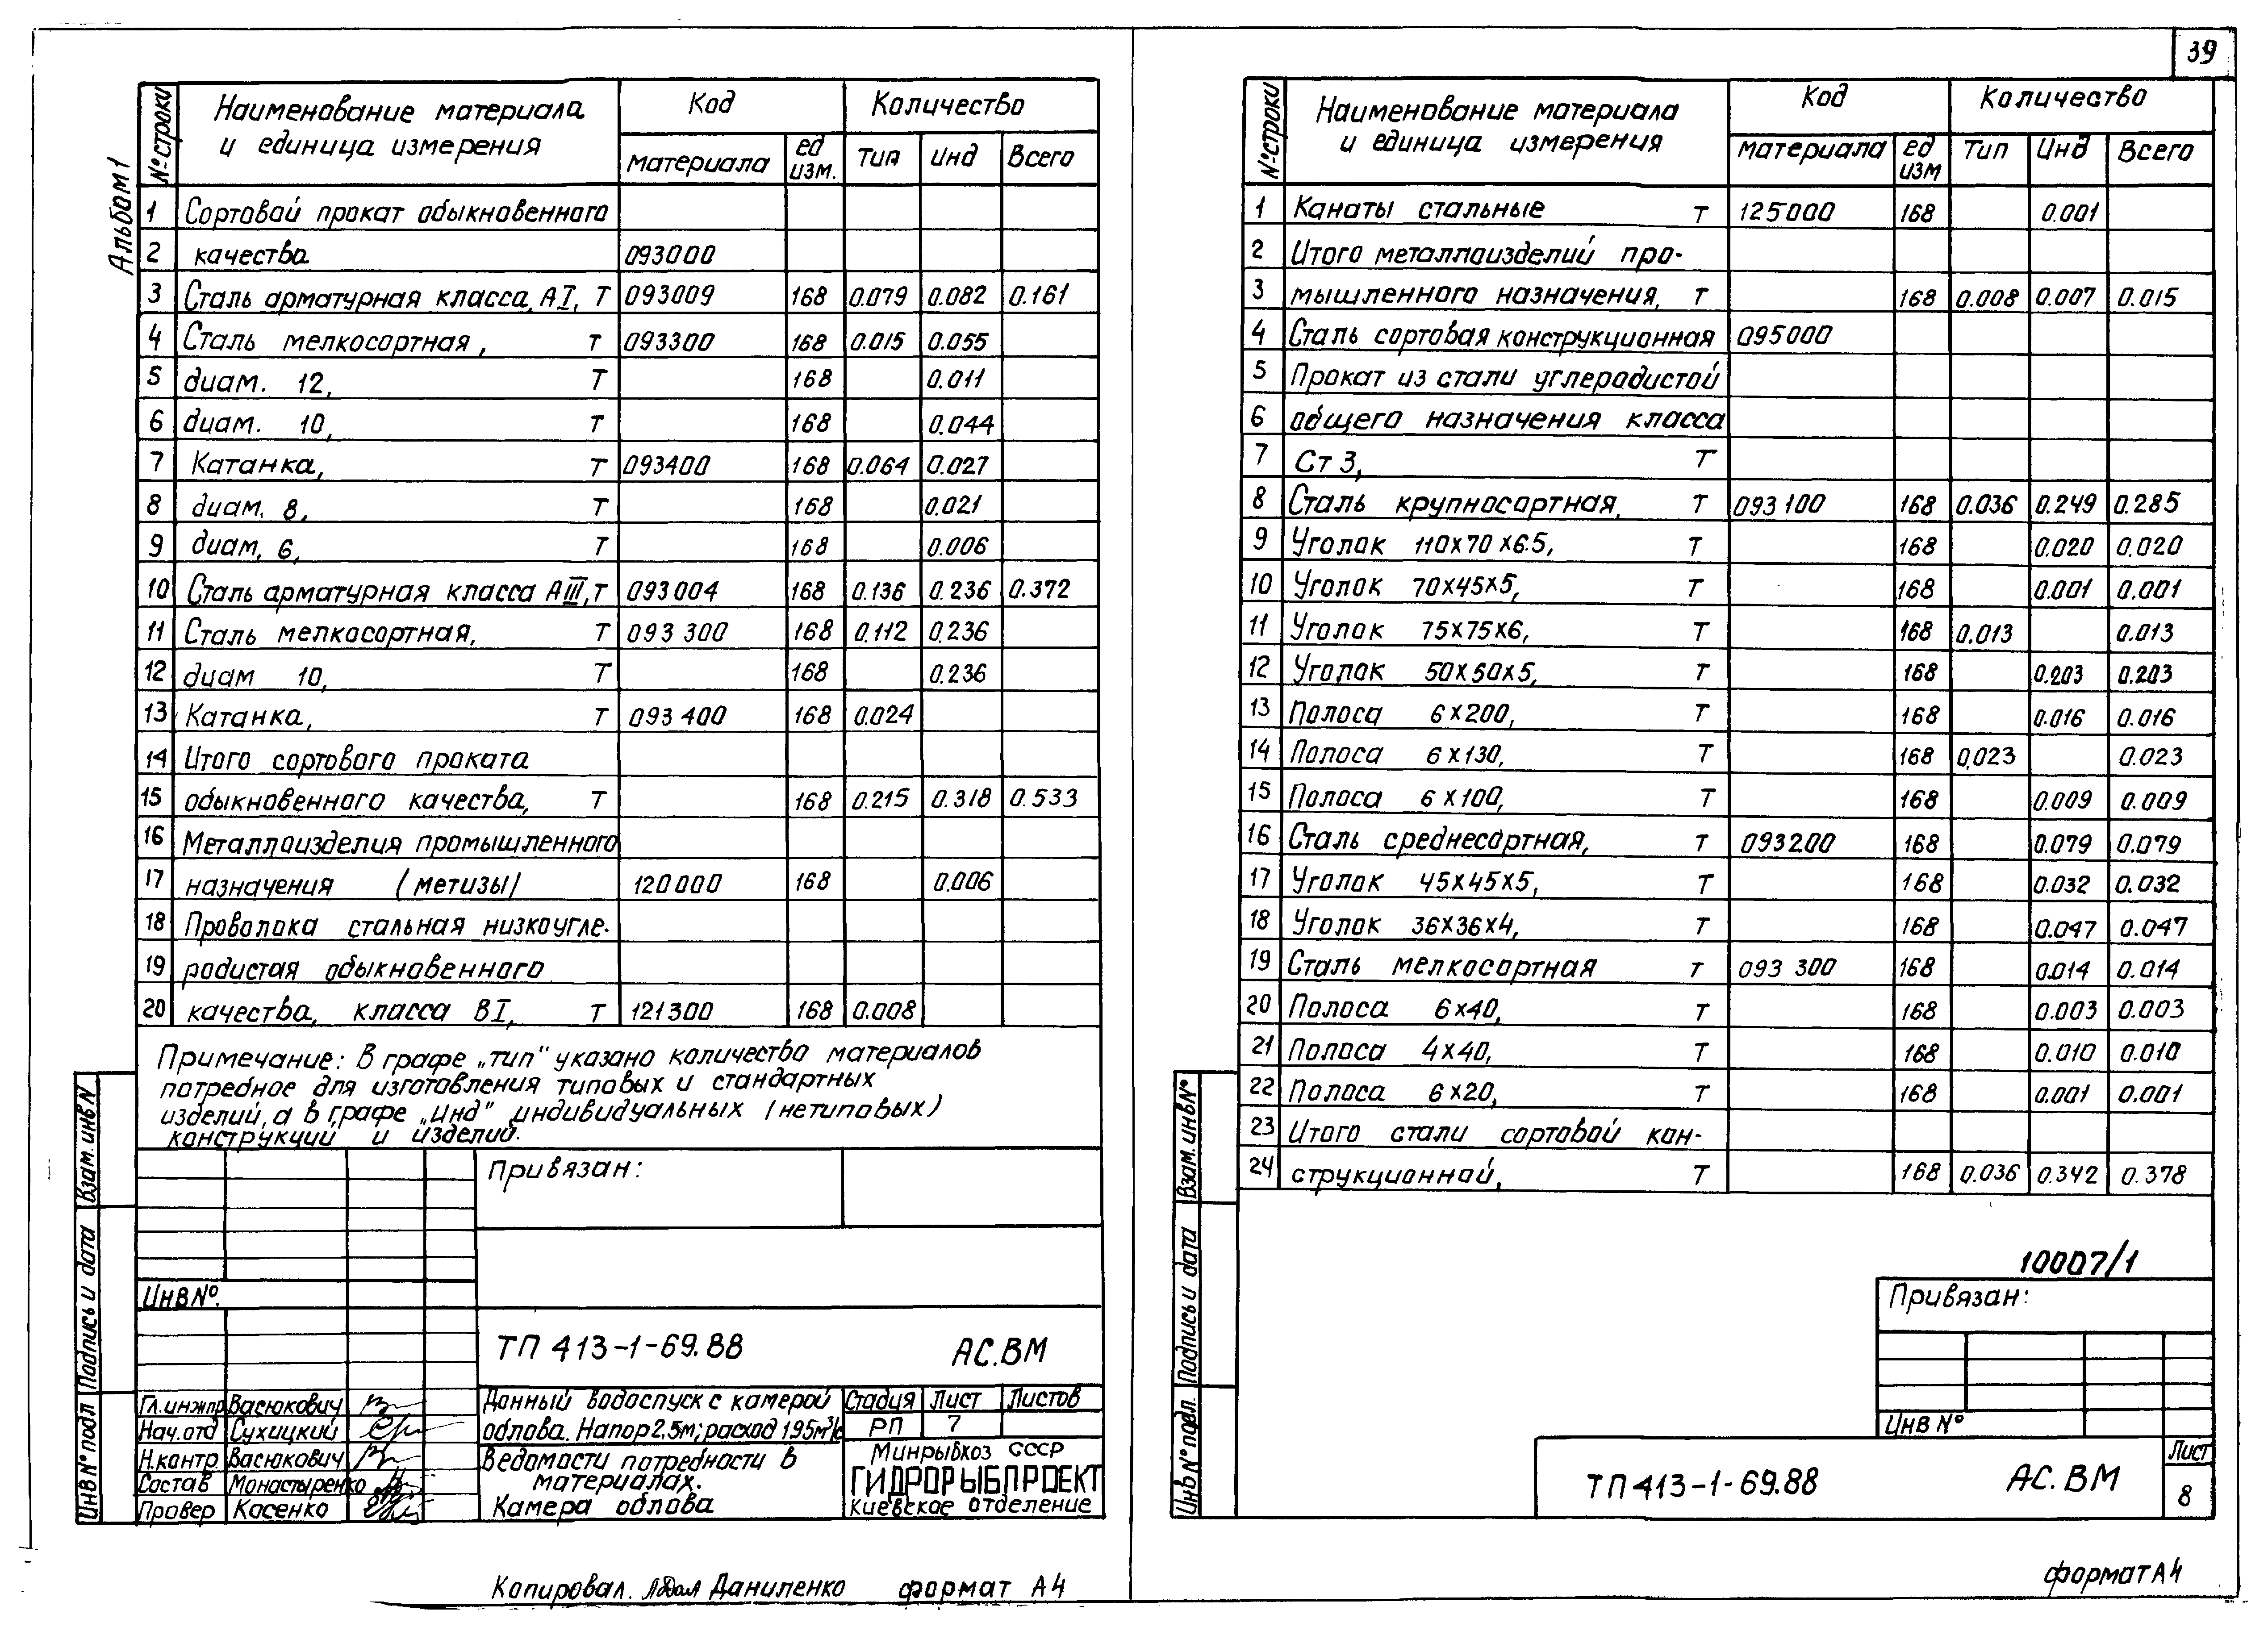 39
Альбом 1
№ строки Наименование материала и единица измерения Код Количество
материала ед изм. Тип Инд Всего
1 Сортовой прокат обыкновенного
2 качества 093000
3 Сталь арматурная класса АI, т 093009 168 0.079 0.082 0.161
4 Сталь мелкосортная, т 093300 168 0.015 0.055
5 диам. 12, т 168 0.011
6 диам. 10, т 168 0.044
7 Катанка, т 093400 168 0.064 0.027
8 диам. 8, т 168 0.021
9 диам. 6, т 168 0.006
10 Сталь арматурная класса АIII, т 093004 168 0.136 0.236 0.372
11 Сталь мелкосортная, т 093 300 168 0.112 0.236
12 диам 10, т 168 0.236
13 Катанка, т 093 400 168 0.024
14 Итого сортового проката
15 обыкновенного качества, т 168 0.215 0.318 0.533
16 Металлоизделия промышленного
17 назначения (метизы) 120000 168 0.006
18 Проволока стальная низкоугле-
19 родистая обыкновенного
20 качества, класса ВI, т 121300 168 0.008
Примечание: В графе „тип" указано количество материалов
потребное для изготовления типовых и стандартных
изделий, а в графе „инд" индивидуальных (нетиповых)
конструкций и изделий.
Привязан:
Инв №.
ТП 413-1-69.88 АС.ВМ
Гл.инж.пр Васюкович
Нач.отд Сухицкий
Н.контр. Васюкович
Состав Монастыренко
Провер Касенко
Донный водоспуск с камерой
облова. Напор 2,5м; расход 1.95м³/с
Ведомости потребности в
материалах.
Камера облова
Стадия Лист Листов
РП 7
Минрыбхоз СССР
ГИДРОРЫБПРОЕКТ
Киевское отделение
Взам. инв N
Подпись и дата
Инв № подл
Копировал. Даниленко формат А4
№ строки Наименование материала и единица измерения Код Количество
материала ед изм Тип Инд Всего
1 Канаты стальные т 125000 168 0.001
2 Итого металлоизделий про-
3 мышленного назначения, т 168 0.008 0.007 0.015
4 Сталь сортовая конструкционная 095000
5 Прокат из стали углеродистой
6 общего назначения класса
7 Ст 3, т
8 Сталь крупносортная, т 093 100 168 0.036 0.249 0.285
9 Уголок 110х70х6.5, т 168 0.020 0.020
10 Уголок 70х45х5, т 168 0.001 0.001
11 Уголок 75х75х6, т 168 0.013 0.013
12 Уголок 50х50х5, т 168 0.203 0.203
13 Полоса 6х200, т 168 0.016 0.016
14 Полоса 6х130, т 168 0,023 0.023
15 Полоса 6х100, т 168 0.009 0.009
16 Сталь среднесортная, т 093200 168 0.079 0.079
17 Уголок 45х45х5, т 168 0.032 0.032
18 Уголок 36х36х4, т 168 0.047 0.047
19 Сталь мелкосортная т 093 300 168 0.014 0.014
20 Полоса 6х40, т 168 0.003 0.003
21 Полоса 4х40, т 168 0.010 0.010
22 Полоса 6х20, т 168 0.001 0.001
23 Итого стали сортовой кон-
24 струкционной, т 168 0.036 0.342 0.378
10007/1
Привязан:
Инв №
ТП 413-1-69.88 АС.ВМ
Лист
8
Взам. инв №
Подпись и дата
Инв № подл.
формат А4